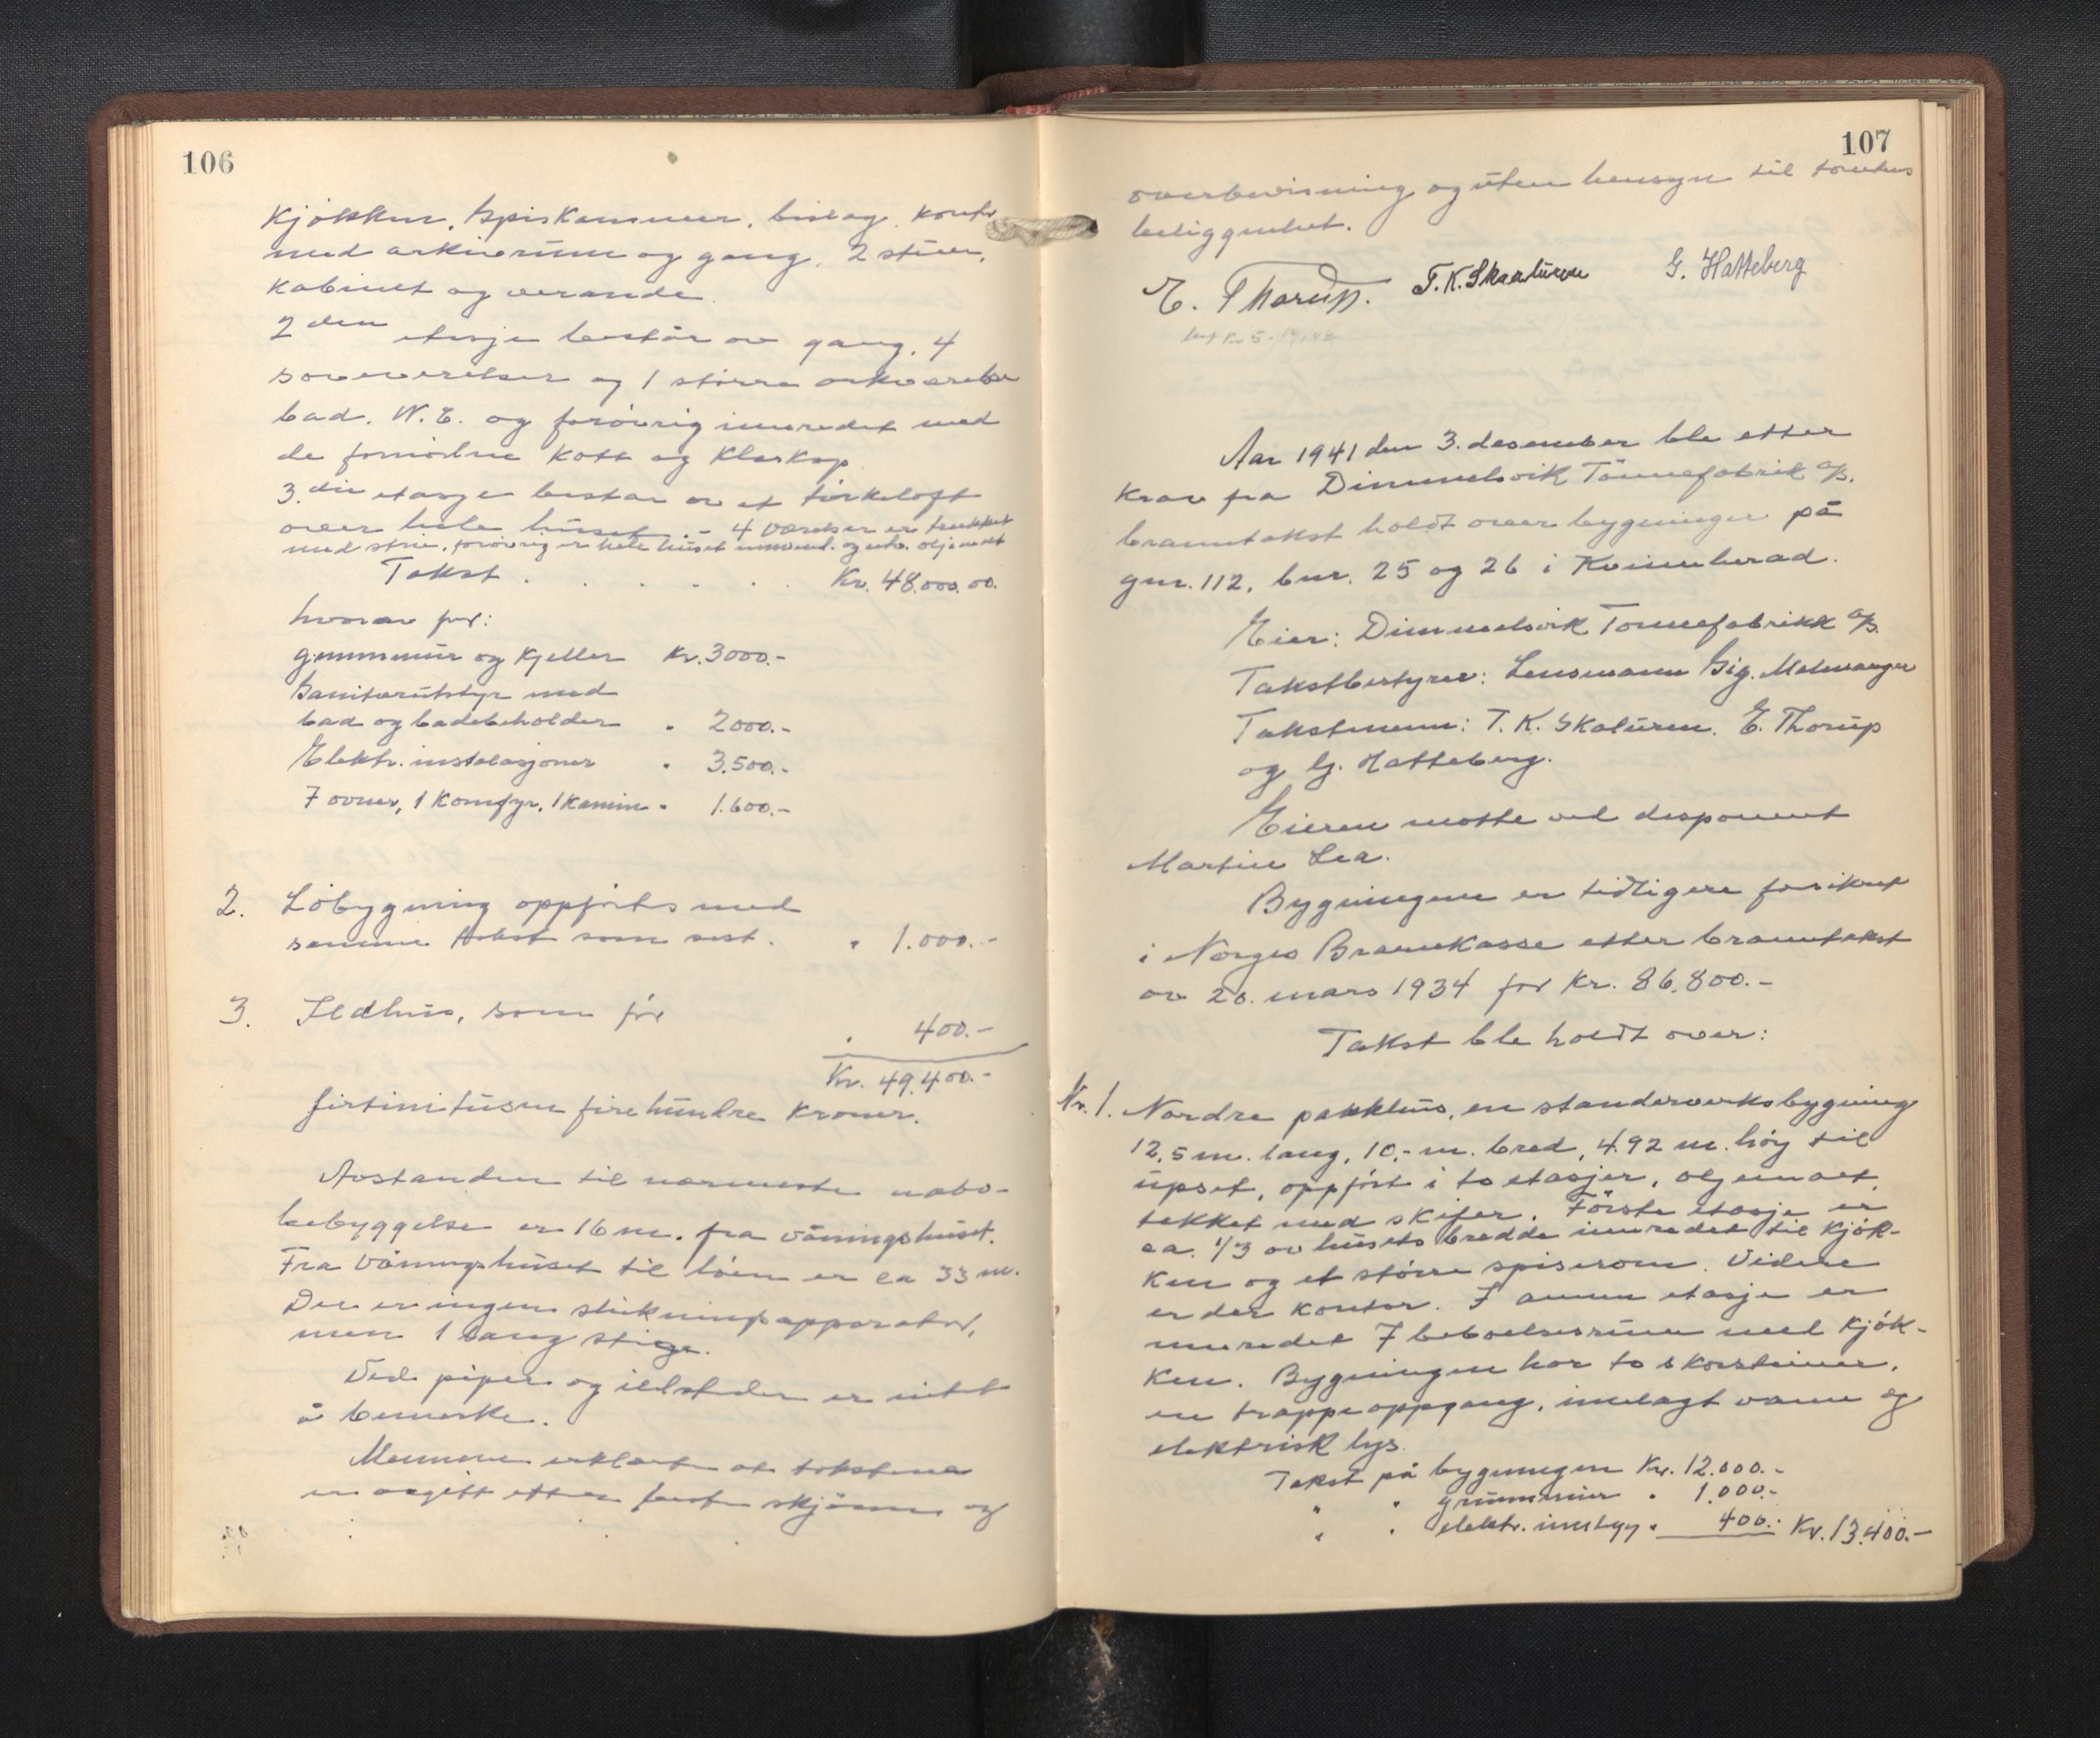 106
Kjøkken, Spiskammer, bislag, kontor
med arkivrum og gang, 2 stuer,
kabinet og veranda.
2den etasje består av gang, 4
soveværelser og 1 større arkværelse
bad, W.C. og forøvrig innredet med
de fornødne kott og klæskap.
3.die etasje består av et törkeloft
over hele huset. - 4 værelser er trukket
med strie, forøvrig er hele huset innvend. og utv. oljemalt
Takst . . . . . . Kr. 48.000.00.
hvorav for:
grunnmur og kjeller Kr. 3000.-
Sanitærutstyr med
bad og badebeholder " 2000.-
Elektr. instalasjoner " 3.500.-
7 ovner, 1 Komfyr, 1 kamin " 1.600.-
2. Löbygning oppförtes med
samme takst som sist. " 1.000.-
3. Ildhus, som för " 400.-
Kr. 49.400.-
förtinitusen firehundre Kroner.
Avstanden til nærmeste nabo-
bebyggelse er 16 m. fra våningshuset.
Fra våningshuset til löen er ca 33 m.
Der er ingen slukningsapparater,
men 1 lang stige.
Ved piper og ildsteder er intet
å bemerke.
Mennene erklærte at takstene
er avgitt etter beste skjönn og
107
overbevisning og uten hensyn til tomtens
beliggenhet.
E. Thorup. T. K. Skaaluren G. Hatteberg
Aar 1941 den 3. desember ble etter
krav fra Dimmelsvik Tönnefabrik a/s.
branntakst holdt over bygninger på
gnr. 112, bnr. 25 og 26 i Kvinnherad.
Eier: Dimmelsvik Tönnefabrikk a/s.
Takstbestyrer: Lensmann Sig. Malmanger
Takstmenn: T. K. Skaluren, E. Thorup
og G. Hatteberg.
Eieren møtte ved disponent
Martin Lea.
Bygningene er tidligere forsikret
i Norges Brannkasse etter branntakst
av 20. mars 1934 for Kr. 86.800.-
Takst ble holdt over:
Nr. 1. Nordre pakkhus, en standerverksbygning
12,5 m. lang, 10,- m. bred, 4.92 m. höy til
upset, oppfört i to etasjer, oljemalt,
tekket med skifer. Förste etasje er
ca. 1/3 av husets bredde innredet til kjök-
ken og et större spiserom. Videre
er der kontor. I annen etasje er
innredet 7 beboelsesrum med kjök-
ken. Bygningen har to skorsteiner,
en trappeoppgang, innlagt vann og
elektrisk lys.
Takst på bygningen Kr. 12.000.-
" " grunnmur " 1.000.-
" " elektr. innlegg " 400.- Kr. 13.400.-